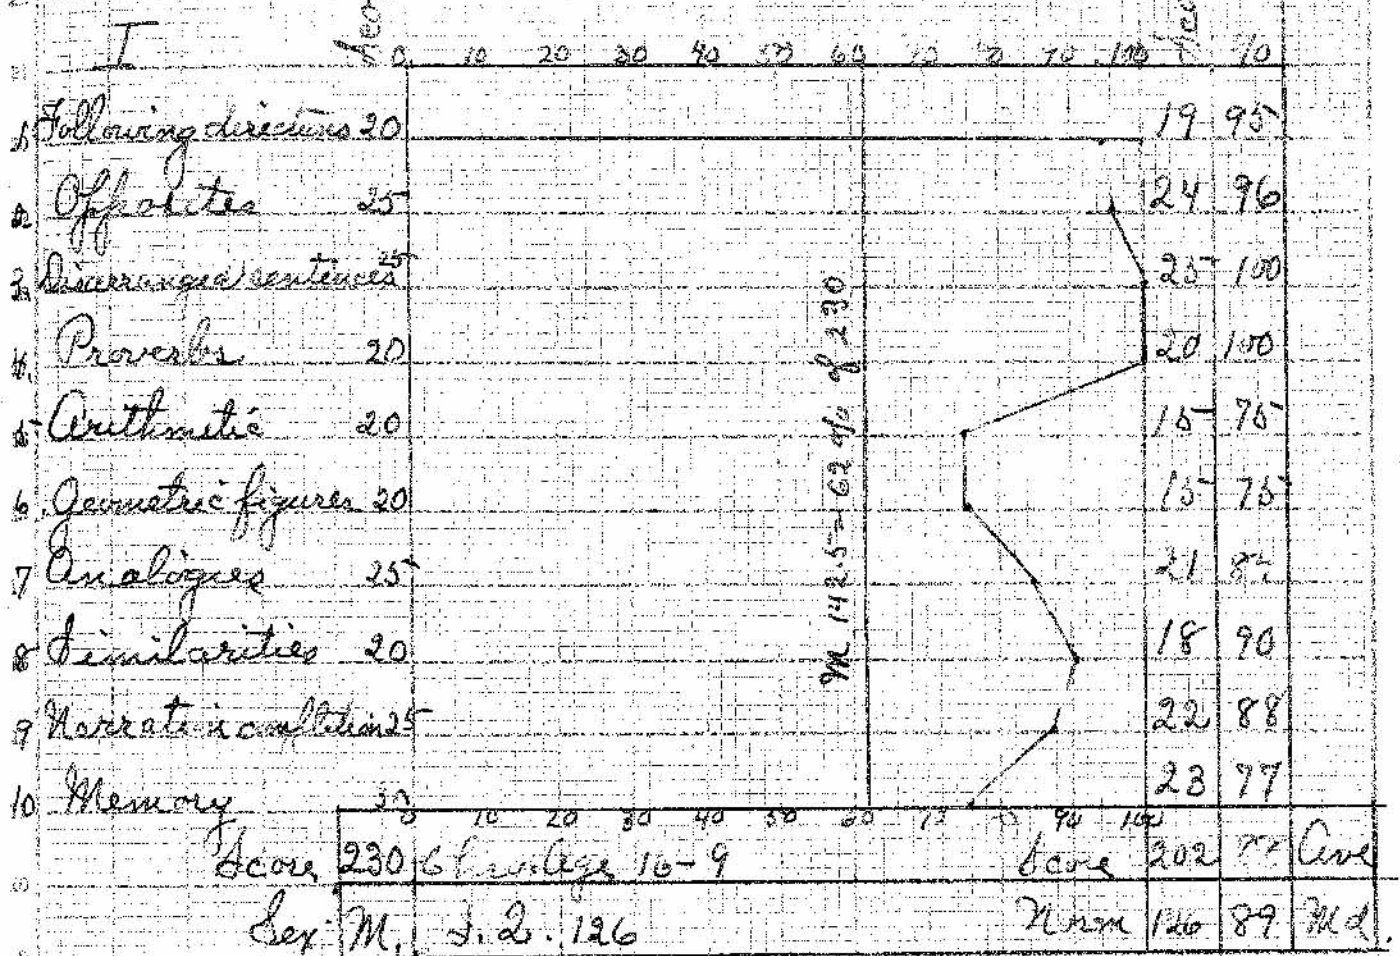 I
0 10 20 30 40 50 60 70 80 90 100 %
1 Following directions 20 19 95
2 Opposites 25 24 96
3 Disarranged sentences 25 25 100
4. Proverbs 20 20 100
5 Arithmetic 20 15 75
6. Geometric figures 20 15 75
7 Analogies 25 21
8 Similarities 20 18 90
9 Narrative completion 25 22 88
10 Memory 23 77
M 142.5 = 62 % of 230
0 10 20 30 40 50 60 70 80 90 100
Score 230 Age 16-9 Score 202 Ave
Sex M. I.Q. 126 Norm 126 89 Md.